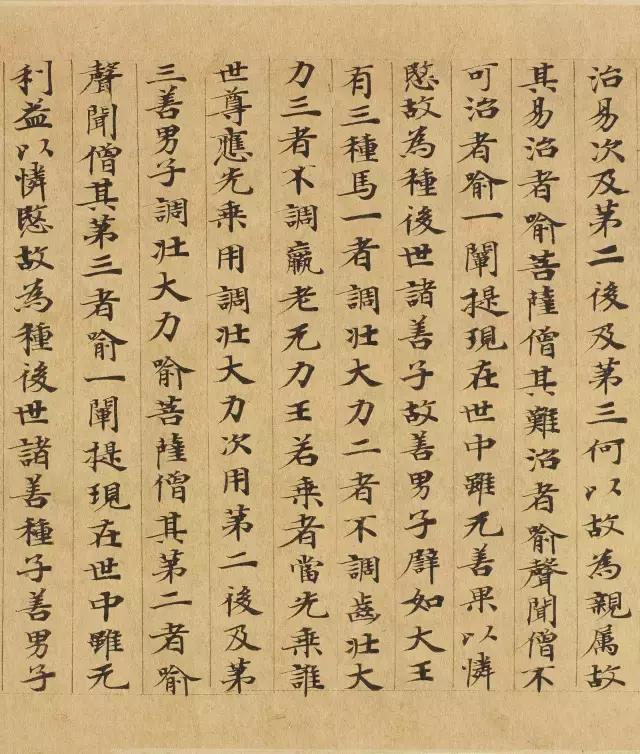 治易次及第二後及第三何以故為親属故
其易治者喻菩薩僧其難治者喻聲聞僧不
可治者喻一闡提現在世中雖无善果以憐
愍故為種後世諸善子故善男子辟如大王
有三種馬一者調壯大力二者不調齒壯大
力三者不調羸老无力王若乗者當先乗誰
世尊應先乗用調壯大力次用第二後及第
三善男子調壯大力喻菩薩僧其第二者喻
聲聞僧其第三者喻一闡提現在世中雖无
利益以憐愍故為種後世諸善種子善男子